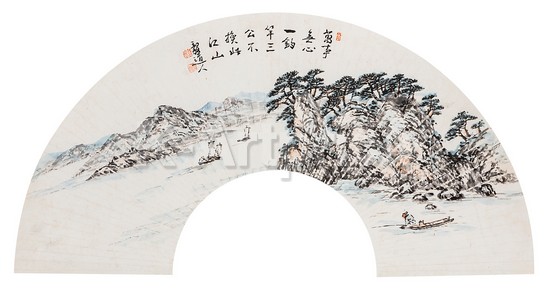 萬事
無心
一釣
竿三
公不
換此
江山
毅道人